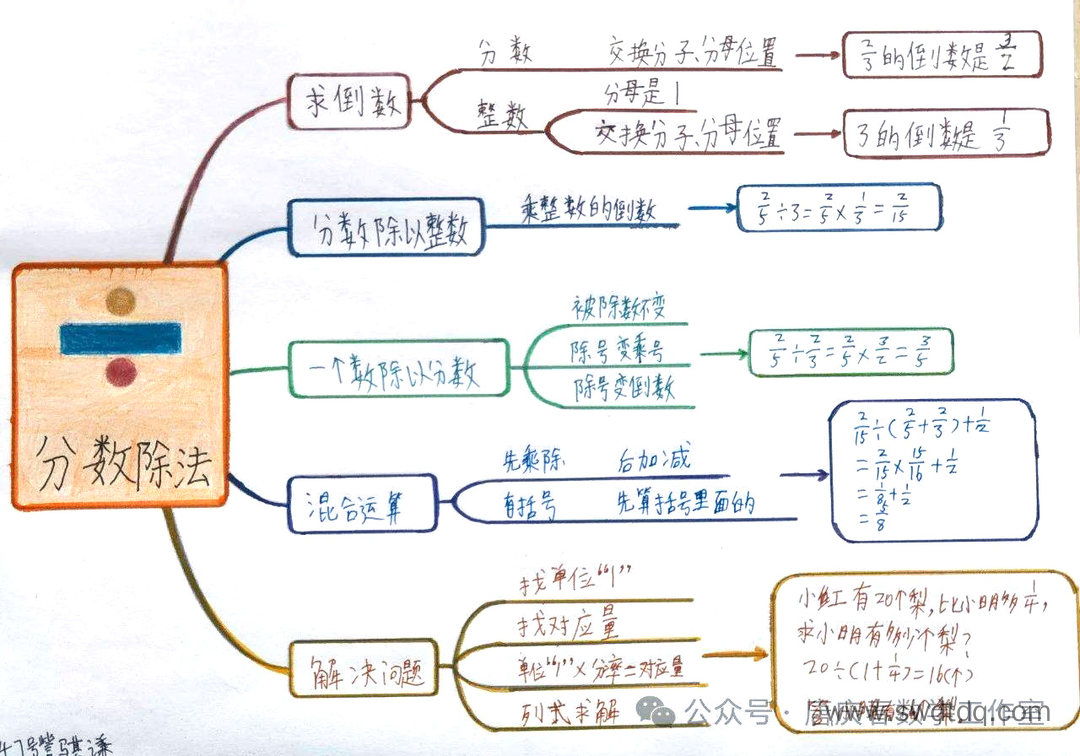 分数除法
求倒数
分数 交换分子、分母位置
2/3的倒数是3/2
整数
分母是1
交换分子、分母位置
3的倒数是1/3
分数除以整数
乘整数的倒数
2/5÷3=2/5×1/3=2/15
一个数除以分数
被除数不变
除号变乘号
除号变倒数
2/5÷2/3=2/5×3/2=3/5
混合运算
先乘除 后加减
有括号 先算括号里面的
2/15÷(2/5+2/3)+1/2
=2/15×15/16+1/2
=1/8+1/2
=5/8
解决问题
找单位“1”
找对应量
单位“1”×分率=对应量
列式求解
小红有20个梨,比小明多1/4,
求小明有多少个梨?
20÷(1+1/4)=16(个)
公众号
数学工作室